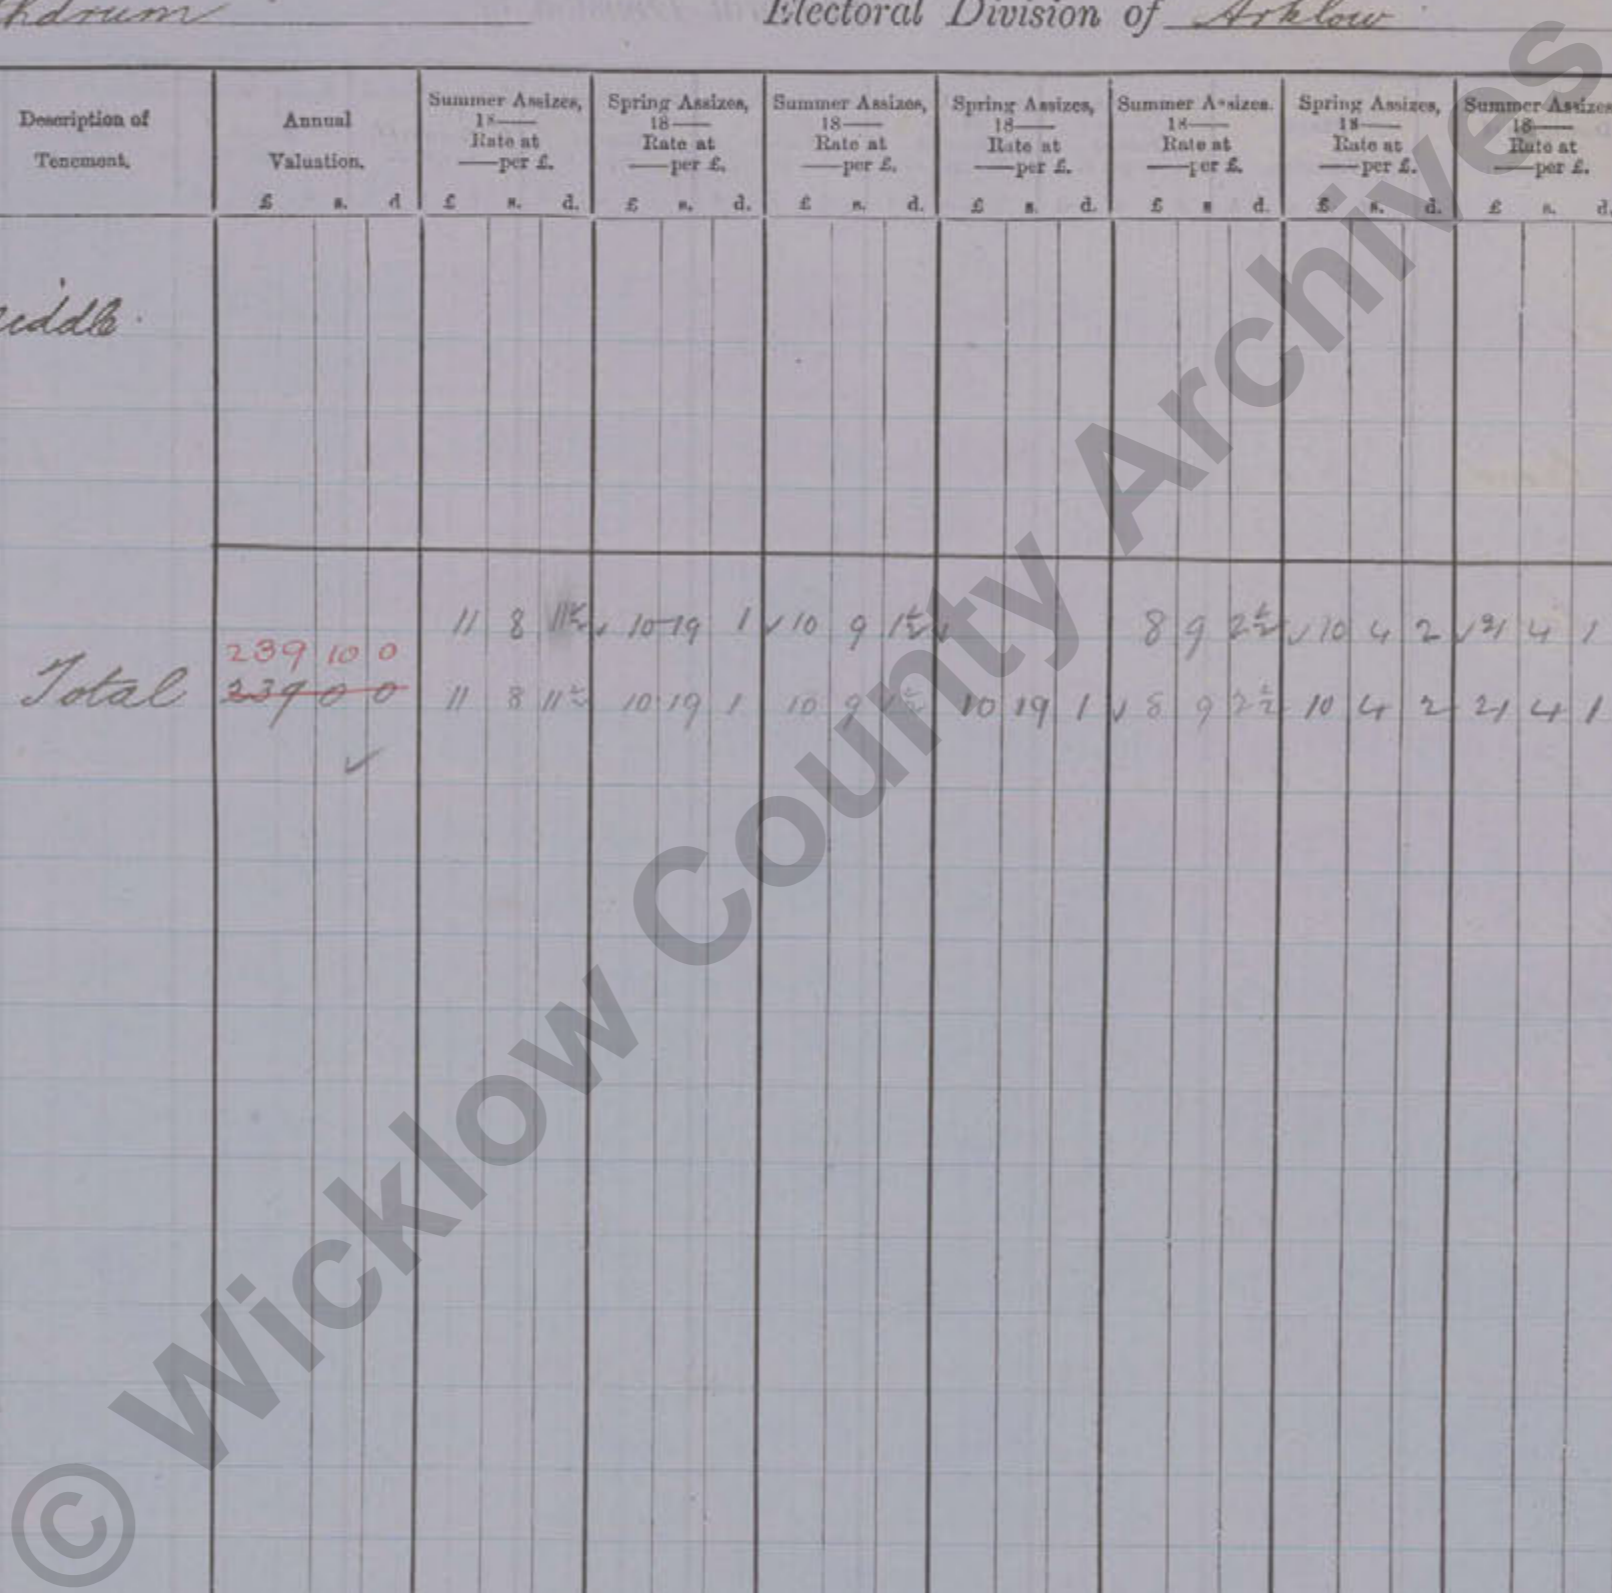 hdrum Electoral Division of Arklow
Description of Tenement. Annual Valuation. £ s. d Summer Assizes, 18— Rate at —per £. £ s. d. Spring Assizes, 18— Rate at —per £. £ s. d. Summer Assizes, 18— Rate at —per £. £ s. d. Spring Assizes, 18— Rate at —per £. £ s. d. Summer Assizes. 18— Rate at —per £. £ s d. Spring Assizes, 18— Rate at —per £. £ s. d. Summer Assizes 18— Rate at —per £. £ s. d.
iddle.
11 8 11½ ✓ 10 19 1 ✓ 10 9 1½ ✓ 8 9 2½ ✓ 10 4 2 ✓ 21 4 1
239 10 0
Total 239 0 0 11 8 11½ 10 19 1 10 9 1½ 10 19 1 ✓ 8 9 2½ 10 4 2 21 4 1
✓
© Wicklow County Archives